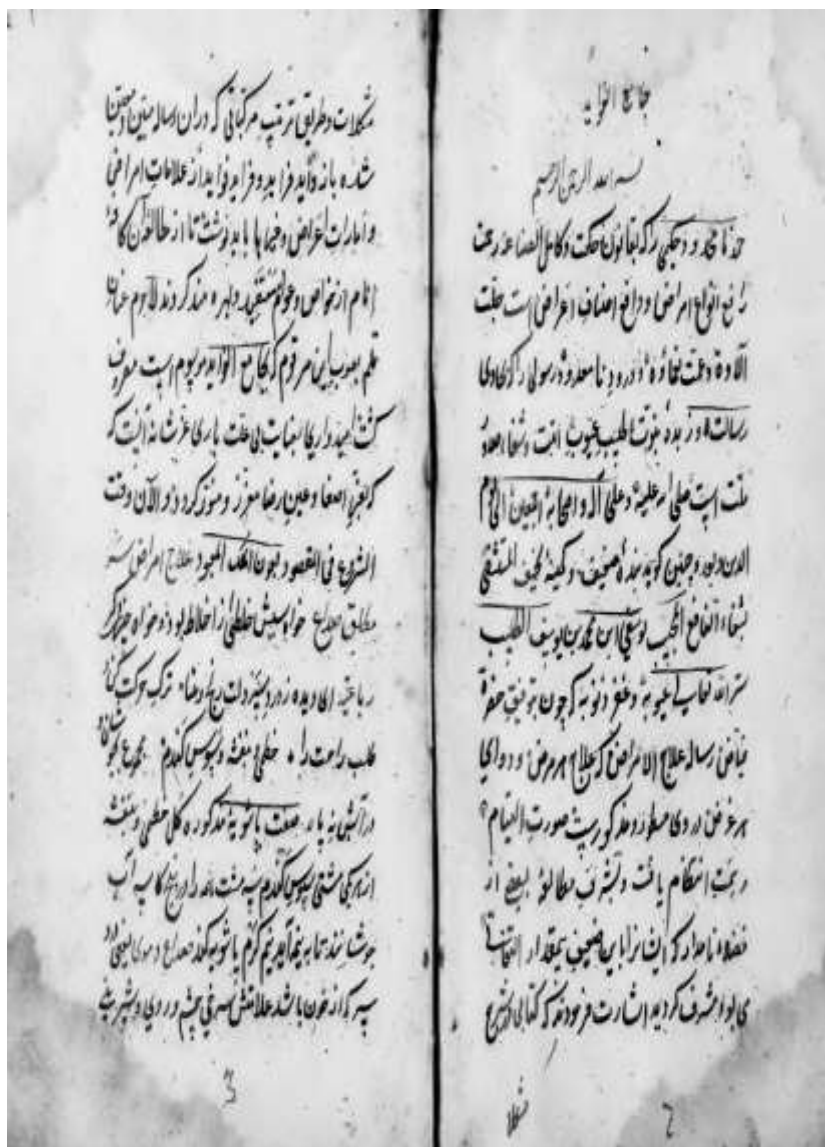 جامع الفواید
بسم الله الرحمن الرحیم
حمد نامحدود حکیمی را که قانون حکمت و کامل الصناعه رحمت
رافع انواع امراض و دافع اصناف اعراض است جلت
آلاؤه و عمت نعماؤه و درود نامعدود رسولی را که حاوی
رسالت و زبده نبوت طبیب عیوب امت و شفاء
ملت است صلی الله علیه و علی آله و اصحابه اجمعین الی یوم
الدین و بعد چنین کوید بنده ضعیف و کمینه نحیف
بشفاء النافع یوسفی ابن محمد بن یوسف الطبیب
ستر الله تعالی عیوبه و غفر ذنوبه که چون بتوفیق حضرة
فیاض رساله علاج الامراض که علاج هر مرض و دوای
هر عرض در وی مسطور و مذکورست صورت التیام
و انتظام یافت و بشرف مطالعه بعضی از
نامدار که این ضعیف بمقدار
مشرف کردید اشارت فرمودند که کتابی در شرح
مشکلا
مشکلات و طریق ترتیب مرکباتی که در آن رساله مبین و
شده با زواید فراید و فراید فواید از علامات امراض
و امارات اعراض و غیرها باید نوشت تا از مطالعه آن کافه
انام از خواص و عوام مستفید و بهره مند کردند لاجرم عنان
قلم بصوب این مرقوم که بجامع الفواید موسوم است معروف
کشت امیدواری بعنایت بی علت باری عز شانه آنست که
بعز اصغا و عین رضا معزز و موقر کردد و الآن وقت
الشروع فی المقصود بعون الملک المعبود علاج امراض سر
مطلق صداع خواه سببش خلطی از اخلاط بود و خواه چیز دیگر
رباعیه ای دیده ز درد سر دلت رنج و عناء ترک حرکت کن
طلب راحت را خطمی بنفشه و سبوس کندم مجموع بجوشان و
در آتش نه پا صفت پاشویه مذکوره کل خطمی و بنفشه
از هر یکی مشتی سبوس کندم سه مشت در پنج کاسه آب
جوشانند تا به نیمه آید نیم کرم پاشویه کنند صداع دموی یعنی درد
سر که از خون باشد علامتش سرخی چشم و روی و شیرینی
3